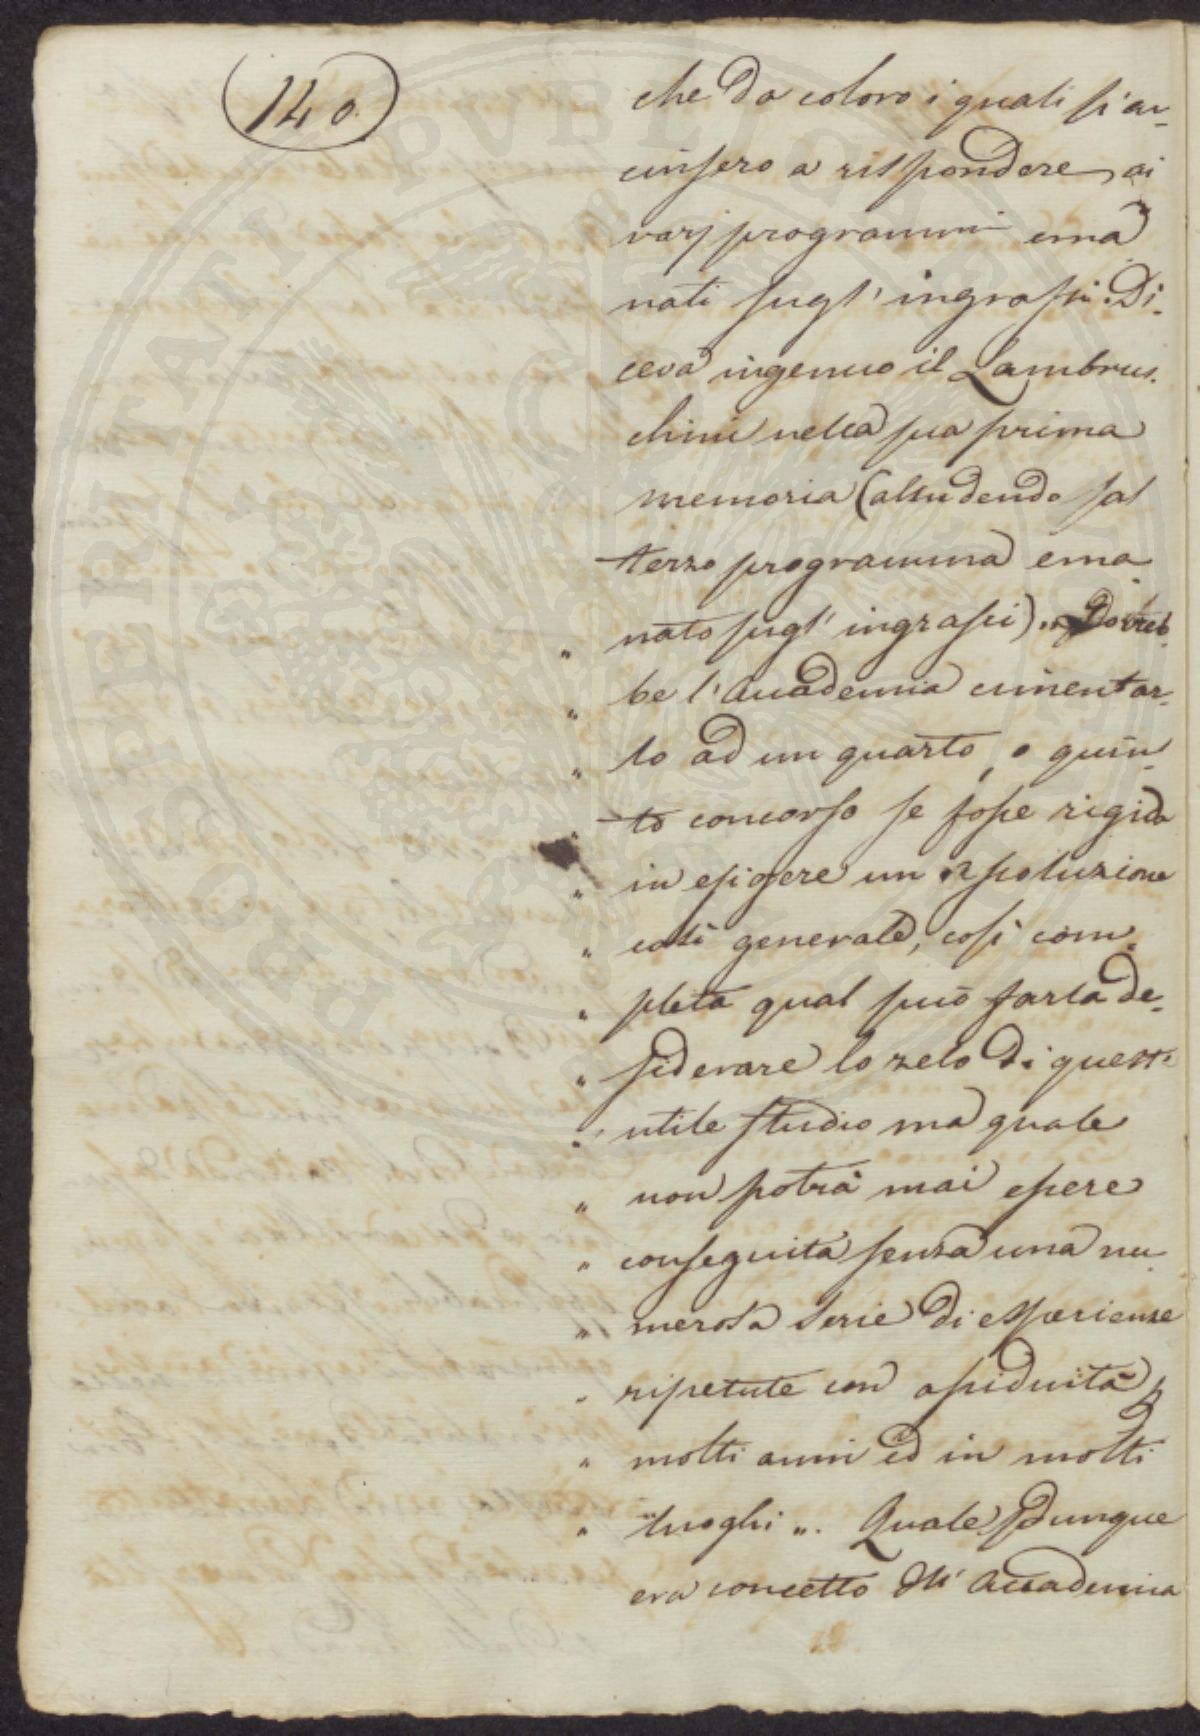 140.
che da coloro i quali si ac-
cinsero a rispondere ai
varj programmi ema
nati sugl' ingrassi. Di-
ceva ingenuo il Lambrus-
chini nella sua prima
memoria (alludendo sal
terzo programma ema
nato sugl' ingrassi) „ Dovreb
„ be l'Accademia cimentar-
„ lo ad un quarto, o quin-
„ to concorso se fosse rigida
„ in esigere un soluzione
„ così generale, così com-
„ pleta qual può farla de-
„ siderare lo zelo di questi
„ utile studio ma quale
„ non potrà mai essere
„ conseguita senza una nu-
„ merosa serie di esperienze
„ ripetute con assiduità p
„ molti anni ed in molti
„ luoghi „. Quale dunque
era concetto dll' Accademia
PROSPERITATI PVBLICAE